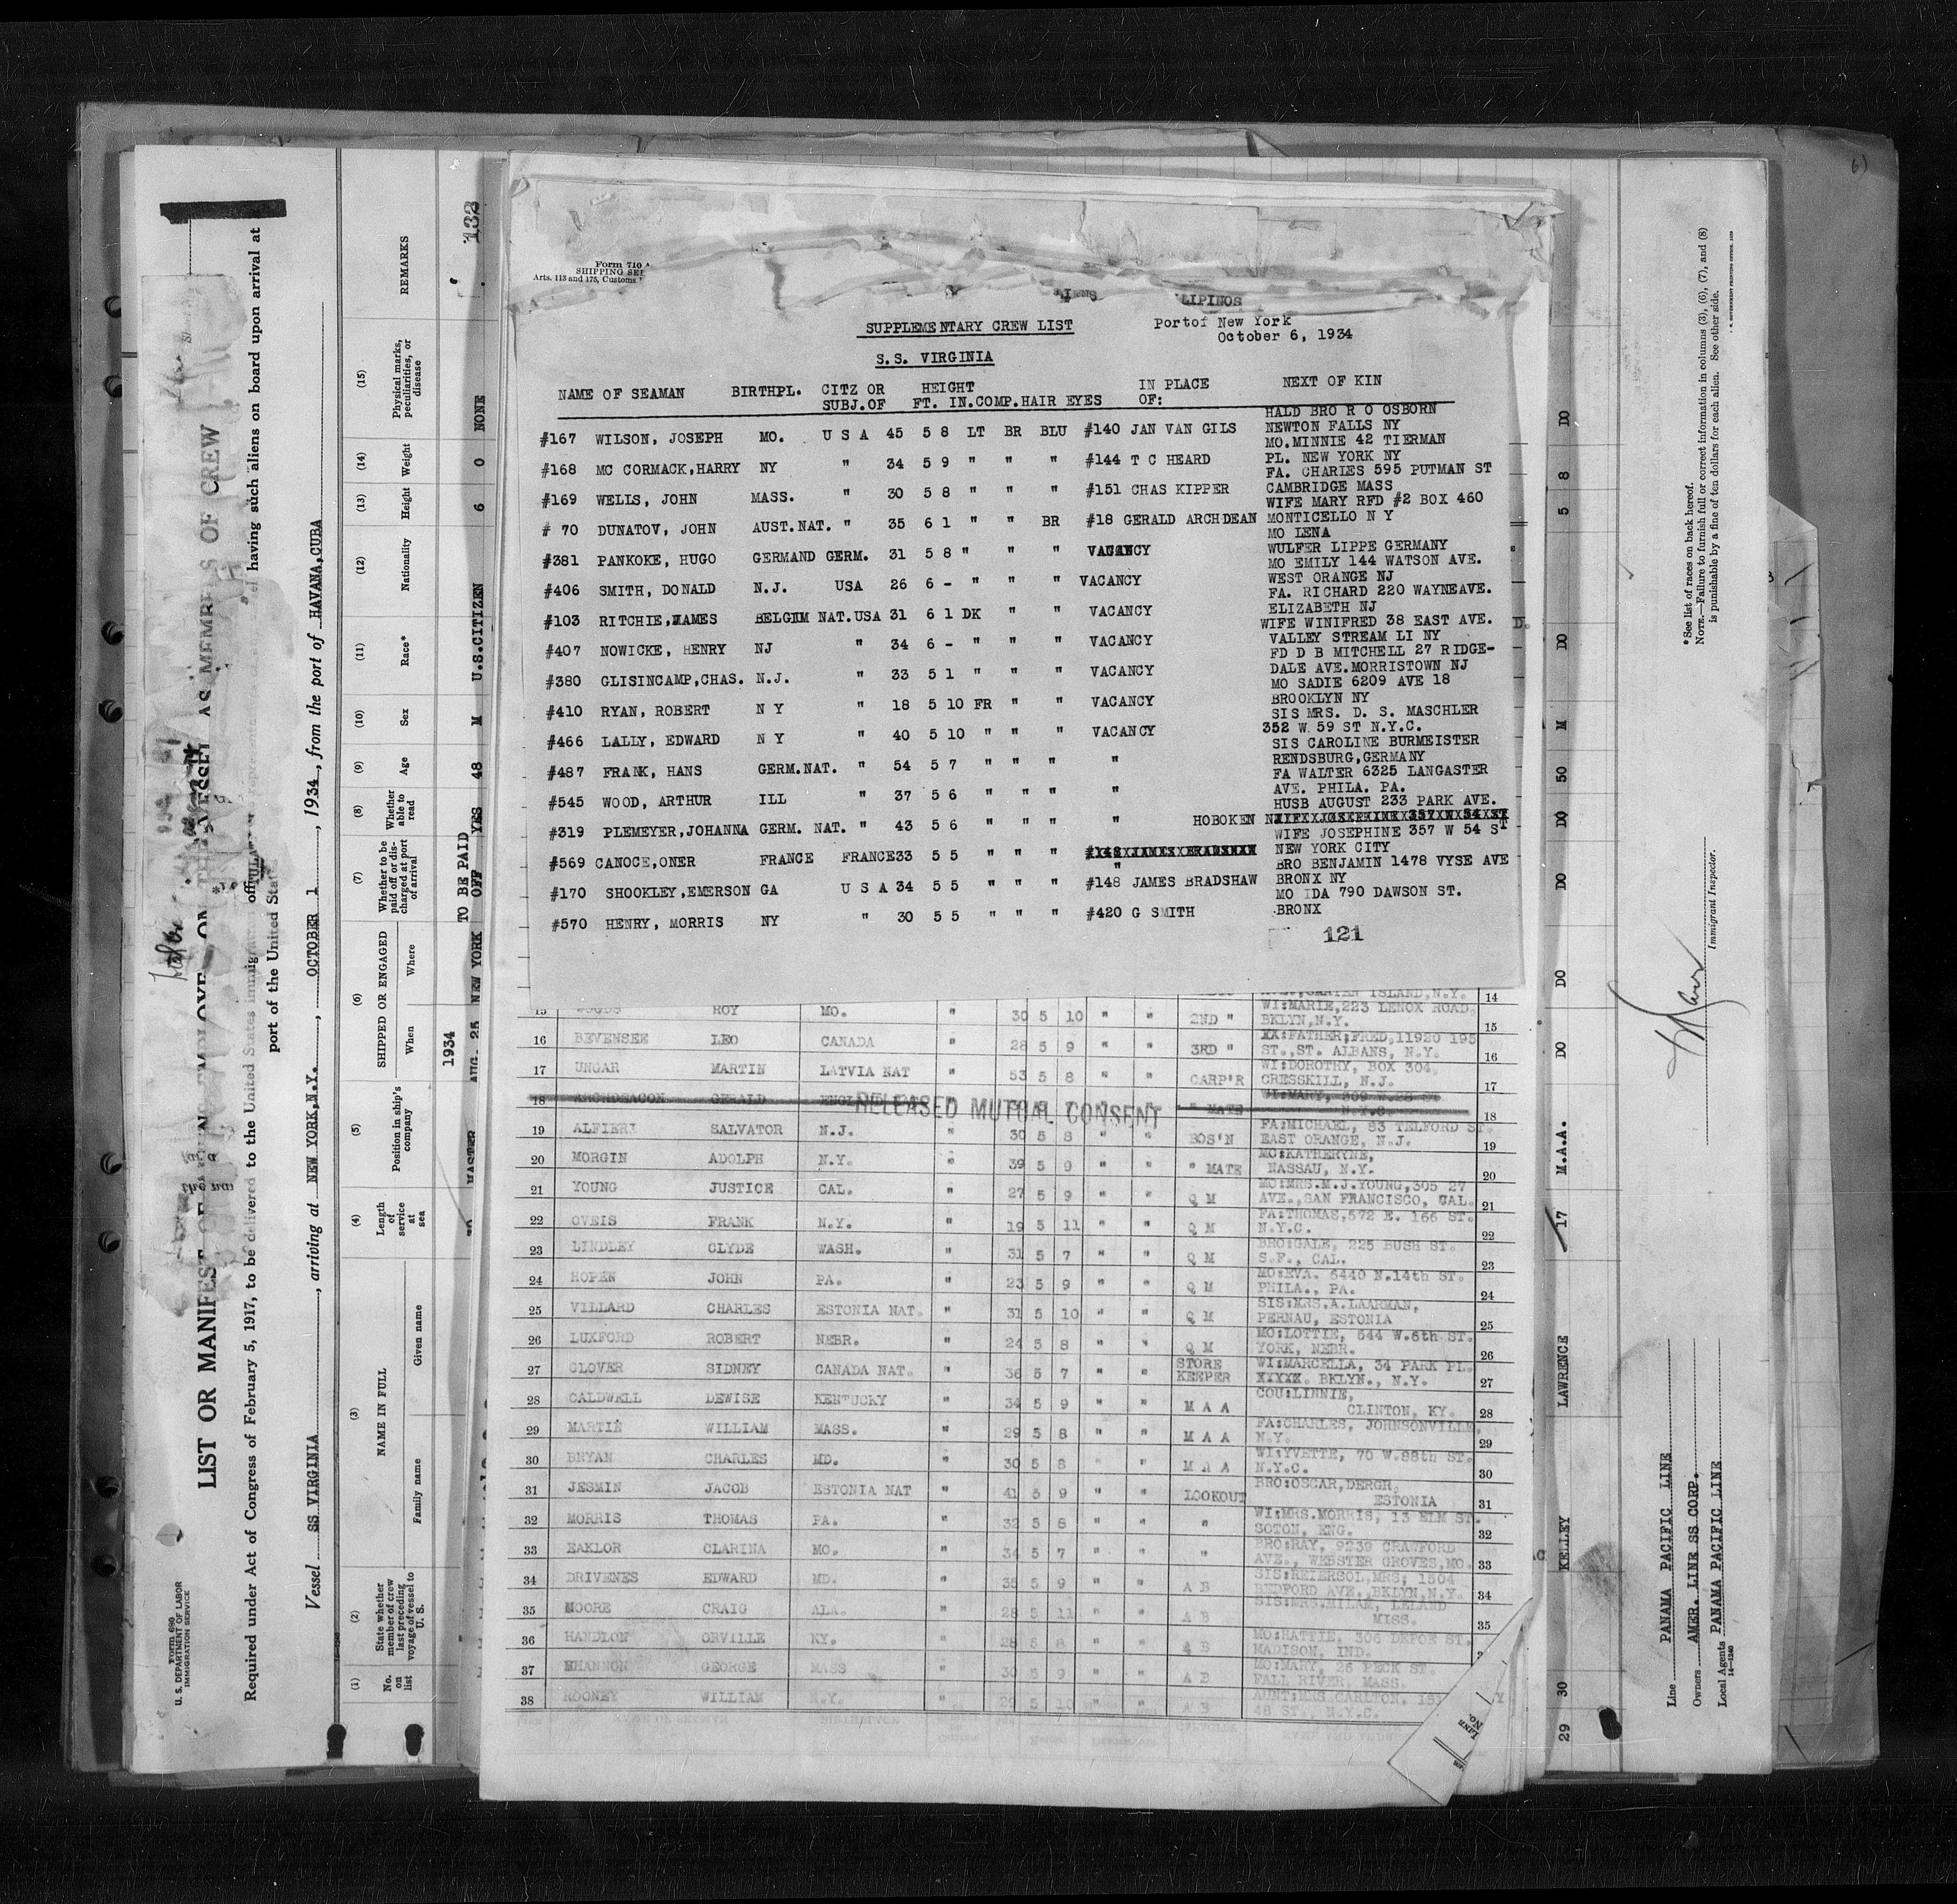 Form 710
SHIPPING SE
Arts. 113 and 175, Customs
LIPINOS
SUPPLEMENTARY CREW LIST
Portof New York
October 6, 1934
S.S. VIRGINIA
NAME OF SEAMAN BIRTHPL. CITZ OR SUBJ.OF HEIGHT FT. IN. COMP. HAIR EYES IN PLACE OF: NEXT OF KIN
HALD BRO R O OSBORN
#167 WILSON, JOSEPH MO. U S A 45 5 8 LT BR BLU #140 JAN VAN GILS NEWTON FALLS NY
MO.MINNIE 42 TIERMAN
#168 MC CORMACK,HARRY NY " 34 5 9 " " " #144 T C HEARD PL. NEW YORK NY
FA. CHARLES 595 PUTMAN ST
#169 WELLS, JOHN MASS. " 30 5 8 " " " #151 CHAS KIPPER CAMBRIDGE MASS
WIFE MARY RFD #2 BOX 460
# 70 DUNATOV, JOHN AUST.NAT. " 35 6 1 " " BR #18 GERALD ARCHDEAN MONTICELLO N Y
MO LENA
#381 PANKOKE, HUGO GERMAND GERM. 31 5 8 " " " VACANCY WULFER LIPPE GERMANY
MO EMILY 144 WATSON AVE.
#406 SMITH, DONALD N.J. USA 26 6 - " " " VACANCY WEST ORANGE NJ
FA. RICHARD 220 WAYNEAVE.
#103 RITCHIE,JAMES BELGIUM NAT.USA 31 6 1 DK " " VACANCY ELIZABETH NJ
WIFE WINIFRED 38 EAST AVE.
#407 NOWICKE, HENRY NJ " 34 6 - " " " VACANCY VALLEY STREAM LI NY
FD D B MITCHELL 27 RIDGE-
#380 GLISINCAMP,CHAS. N.J. " 33 5 1 " " " VACANCY DALE AVE.MORRISTOWN NJ
MO SADIE 6209 AVE 18
#410 RYAN, ROBERT N Y " 18 5 10 FR " " VACANCY BROOKLYN NY
SIS MRS. D. S. MASCHLER
#466 LALLY, EDWARD N Y " 40 5 10 " " " VACANCY 352 W 59 ST N.Y.C.
SIS CAROLINE BURMEISTER
#487 FRANK, HANS GERM.NAT. " 54 5 7 " " " " RENDSBURG,GERMANY
FA WALTER 6325 LANGASTER
#545 WOOD, ARTHUR ILL " 37 5 6 " " " " AVE. PHILA. PA.
HUSB AUGUST 233 PARK AVE.
#319 PLEMEYER,JOHANNA GERM. NAT. " 43 5 6 " " " " HOBOKEN N
WIFE JOSEPHINE 357 W 54 ST
#569 CANOCE,ONER FRANCE FRANCE33 5 5 " " " " NEW YORK CITY
BRO BENJAMIN 1478 VYSE AVE
#170 SHOOKLEY,EMERSON GA U S A 34 5 5 " " " #148 JAMES BRADSHAW BRONX NY
MO IDA 790 DAWSON ST.
#570 HENRY, MORRIS NY " 30 5 5 " " " #420 G SMITH BRONX
121
ISLAND,N.Y. 14
WI:MARIE,223 LENOX ROAD,
15 ROY MO. " 30 5 10 " " 2ND " BKLYN,N.Y. 15
FATHER;FRED,11920 195
16 BEVENSEE LEO CANADA " 28 5 9 " " 3RD " ST.,ST. ALBANS, N.Y. 16
WI:DOROTHY, BOX 304,
17 UNGAR MARTIN LATVIA NAT " 53 5 8 " " CARP'R CRESSKILL, N.J. 17
18 ARCHDEACON GERALD " MATE WI:MARY, 309 W.28 ST N.Y.C. 18
RELEASED MUTUAL CONSENT
FA:MICHAEL, 83 TELFORD ST.
19 ALFIERI SALVATOR N.J. " 30 5 8 " " BOS'N EAST ORANGE, N.J. 19
MO:KATHERYNE,
20 MORGIN ADOLPH N.Y. " 39 5 9 " " " MATE NASSAU, N.Y. 20
MO:MRS.M.J.YOUNG,305 27
21 YOUNG JUSTICE CAL. " 27 5 9 " " Q M AVE.,SAN FRANCISCO, CAL. 21
FA:THOMAS,572 E. 166 ST.
22 OVEIS FRANK N.Y. " 19 5 11 " " Q M N.Y.C. 22
BRO:GALE, 225 BUSH ST.
23 LINDLEY CLYDE WASH. " 31 5 7 " " Q M S.F., CAL. 23
MO:EVA. 6440 N.14th ST.
24 HOPEN JOHN PA. " 23 5 9 " " Q M PHILA., PA. 24
SIS:MRS.A.LAARMAN,
25 VILLARD CHARLES ESTONIA NAT. " 31 5 10 " " Q M PERNAU, ESTONIA 25
MO:LOTTIE, 544 W.6th ST.
26 LUXFORD ROBERT NEBR. " 24 5 8 " " Q M YORK, NEBR. 26
WI:MARCELLA, 34 PARK PL.
27 GLOVER SIDNEY CANADA NAT. " 36 5 7 " " STORE KEEPER XXXXX. BKLYN., N.Y. 27
COU:LINNIE,
28 CALDWELL DEWISE KENTUCKY " 34 5 9 " " M A A CLINTON, KY. 28
FA:CHARLES, JOHNSONVILLE,
29 MARTIN WILLIAM MASS. " 29 5 8 " " M A A N.Y. 29
WI:YVETTE, 70 W.88th ST.
30 BRYAN CHARLES MD. " 30 5 8 " " M A A N.Y.C. 30
BRO:OSCAR,DERGR,
31 JESMIN JACOB ESTONIA NAT " 41 5 9 " " LOOKOUT ESTONIA 31
WI:MRS.MORRIS, 13 ELM ST.
32 MORRIS THOMAS PA. " 32 5 8 " " " SOTON, ENG. 32
BRO:RAY, 9239 CRAWFORD
33 EAKLOR CLARINA MO. " 34 5 7 " " " AVE., WEBSTER GROVES,MO. 33
34 DRIVENES EDWARD MD. " 35 5 9 " " A B BEDFORD AVE.,BKLYN,N.Y. 34
SIS:MRS.MILAM, LELAND
35 MOORE CRAIG ALA. " 28 5 11 " " A B MISS. 35
MO:HATTIE, 306 DEPOE ST.
36 HANDLON ORVILLE KY. " 28 5 8 " " A B MADISON, IND.
MO:MARY, 26 PECK ST.
37 SHANNON GEORGE MASS " 30 5 9 " " A B FALL RIVER, MASS.
AUNT:MRS.CARLTON,
38 ROONEY WILLIAM N.Y. " 29 5 10 " " A B 48 ST., N.Y.C.
LINE NO.
Form 680
U. S. DEPARTMENT OF LABOR
IMMIGRATION SERVICE
LIST OR MANIFEST OF AS MEMBERS OF CREW
Required under Act of Congress of February 5, 1917, to be delivered to the United States immigration having such aliens on board upon arrival at
port of the United States
Vessel SS VIRGINIA, arriving at NEW YORK,N.Y., OCTOBER 1, 1934, from the port of HAVANA,CUBA
(1) No. on list
(2) State whether member of crew last preceding voyage of vessel to U. S.
(3) NAME IN FULL Family name Given name
(4) Length of service at sea
(5) Position in ship's company
(6) SHIPPED OR ENGAGED When Where
(7) Whether to be paid off or discharged at port of arrival
(8) Whether able to read
(9) Age
(10) Sex
(11) Race*
(12) Nationality
(13) Height
(14) Weight
(15) Physical marks, peculiarities, or disease
REMARKS
1934 TO BE PAID
MASTER AUG. 25 NEW YORK OFF YES 48 M U.S.CITIZEN 6 0 NONE 132
29 30 KELLEY LAWRENCE 17 M.A.A. DO DO DO DO 50 M DO 5 8 DO
Line PANAMA PACIFIC LINE
Owners AMER. LINE SS CORP.
Local Agents PANAMA PACIFIC LINE
14-1240
Immigrant Inspector.
*See list of races on back hereof.
NOTE.—Failure to furnish full or correct information in columns (3), (6), (7), and (8)
is punishable by a fine of ten dollars for each alien. See other side.